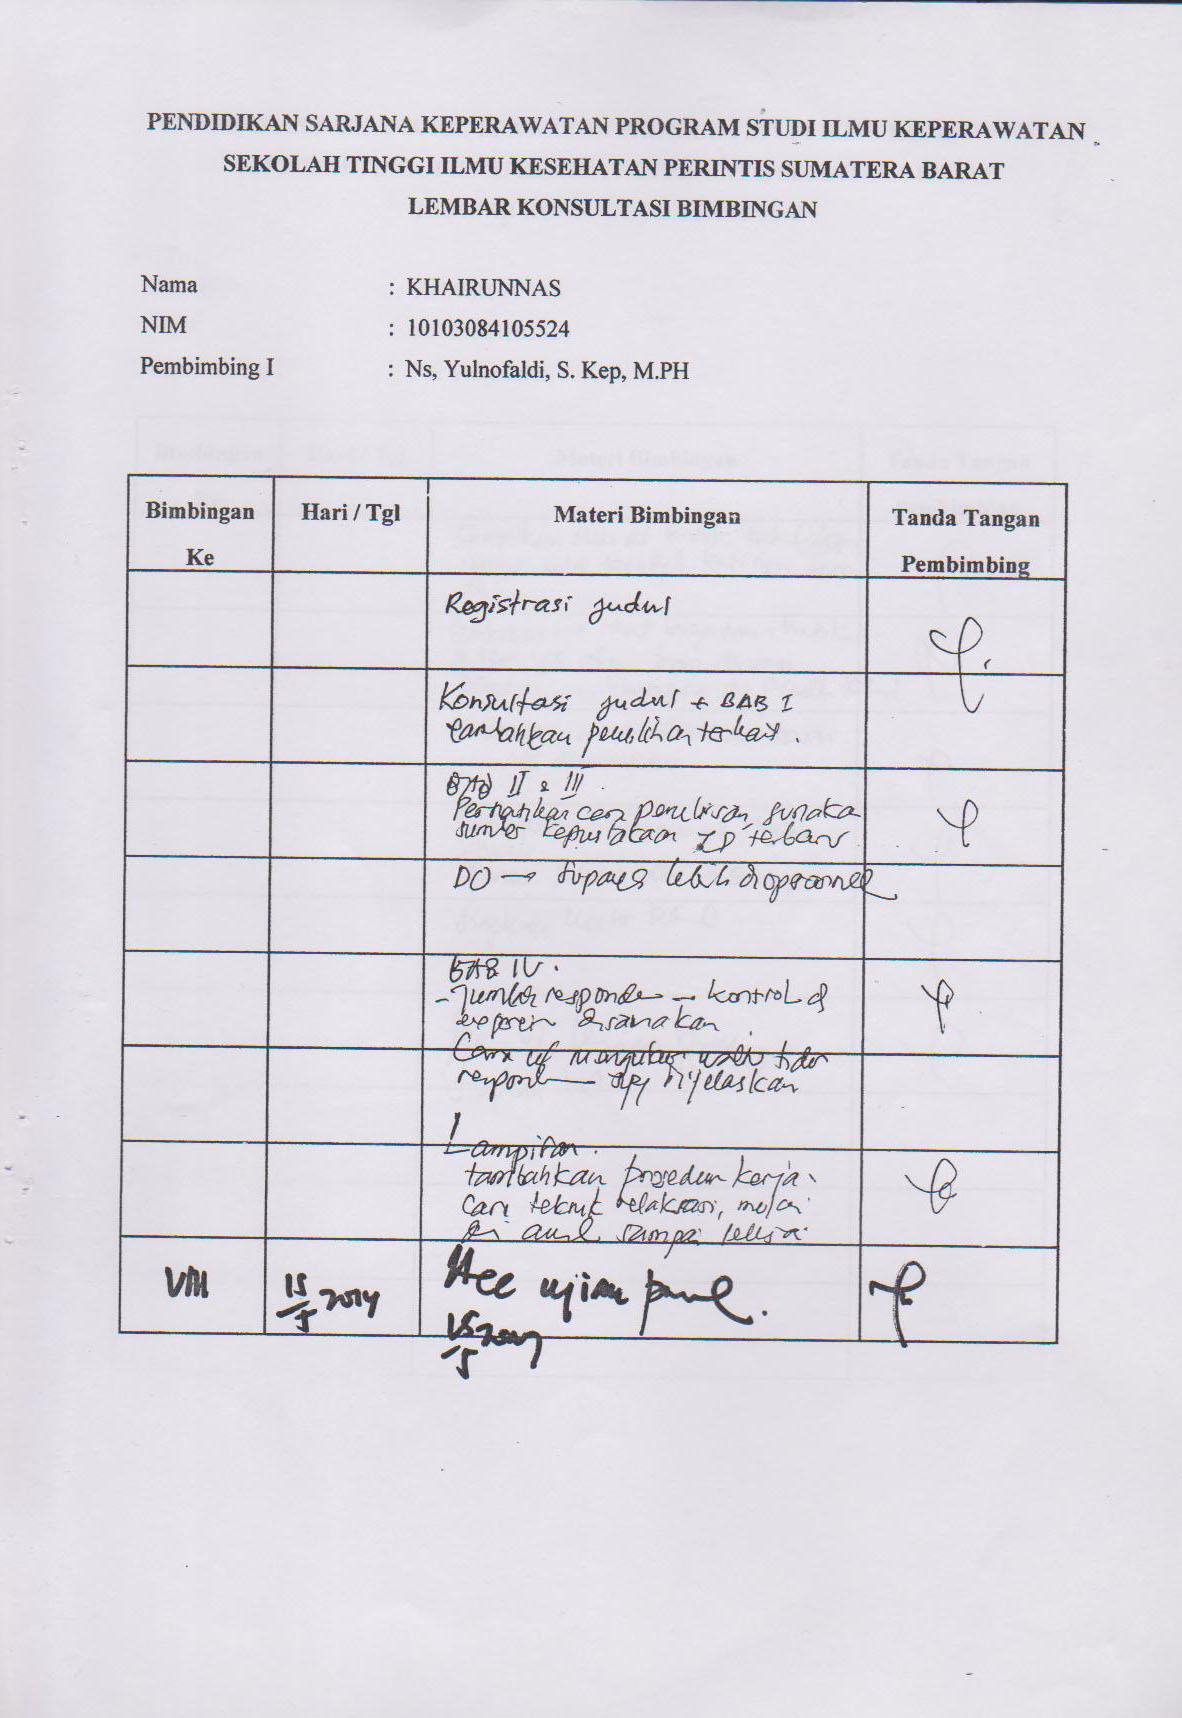 PENDIDIKAN SARJANA KEPERAWATAN PROGRAM STUDI ILMU KEPERAWATAN
SEKOLAH TINGGI ILMU KESEHATAN PERINTIS SUMATERA BARAT
LEMBAR KONSULTASI BIMBINGAN
Nama : KHAIRUNNAS
NIM : 10103084105524
Pembimbing I : Ns, Yulnofaldi, S. Kep, M.PH
Bimbingan Ke Hari / Tgl Materi Bimbingan Tanda Tangan Pembimbing
Registrasi judul
Konsultasi judul + BAB I
tambahkan penelitian terkait.
BAB II & III
Perhatikan cara penulisan, gunakan
sumber kepustakaan terbaru
DO → supaya lebih
BAB IV.
- Jumlah responden - kontrol
disamakan
responden dijelaskan
Lampiran.
tambahkan prosedur kerja
cara teknik relaksasi, mulai
awal sampai selesai
VIII 15/5 2014 Acc ujian
15/5 2014